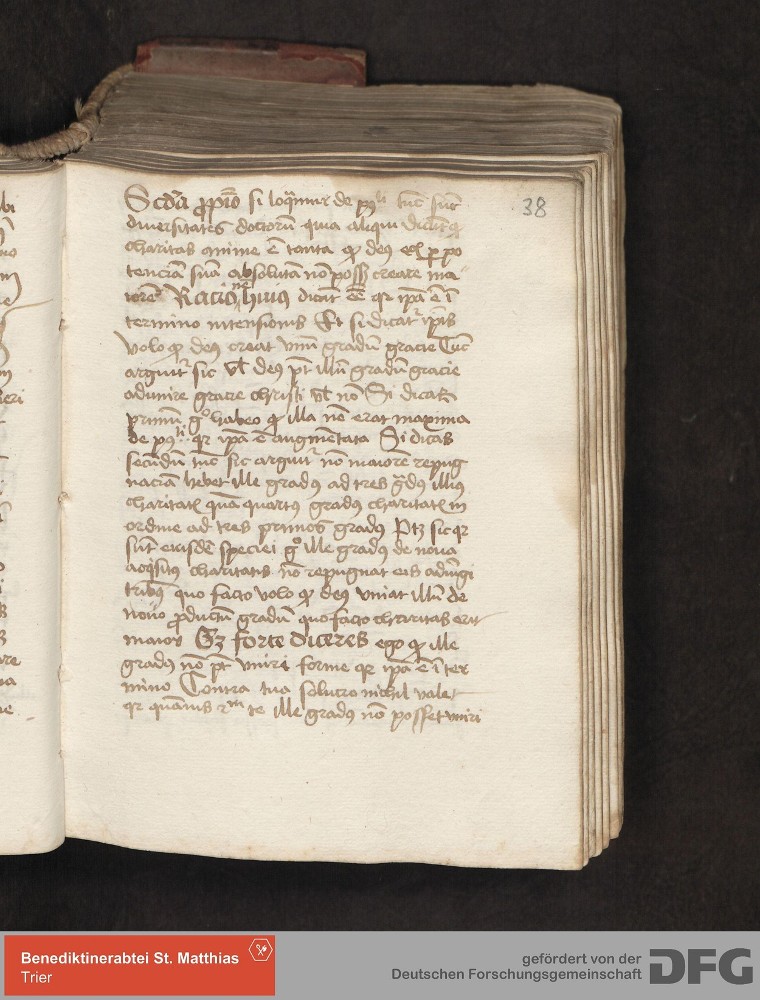 Scda ꝓpio si loq̄mur de p9li tūc sūt
diuersitates doctorū quia aliqui dicūt q
charitas anime ē tanta ꝙ deus eciā ꝑ po
tenciā suā absolutā nō posset creare ma
iorē Racionē huius dicūt eē qꝛ ipā ē ī
termino intensionis Et si dicat᷑ ip̄is
volo ꝙ deus creat vnū gradū gracie Tūc
arguit᷑ sic vl deus pt̄ illū gradū gracie
adunire gracie christi vl nō Si dicas
primū gͦ habeo ꝙ illa nō erat maxima
de p9li qꝛ ipā ē augmētata Si dicas
secūdū tūc sic arguit᷑ nō maiorē repug
naciā habet ille gradus ad tres gͣdus illius
charitatis quā quartus gradus charitatis in
ordine ad tres primos gradus Ptꝫ sic qꝛ
sūt eiusdē speciei gͦ ille gradus de nouo
acqͥsitus charitatis nō repugnat eis adiūgi
tribus quo facto volo ꝙ deus vniat illū de
nouo ꝓductū gradū quo facto charitas erit
maior Sꝫ forte diceres ego ꝙ ille
gradus nō pt̄ vniri forme qꝛ ipā ē ī ter
mino Contra tua solucio nichil valet
qꝛ quāuis ẜm te ille gradus nō posset vniri
38
Benediktinerabtei St. Matthias
Trier
gefördert von der
Deutschen Forschungsgemeinschaft
DFG